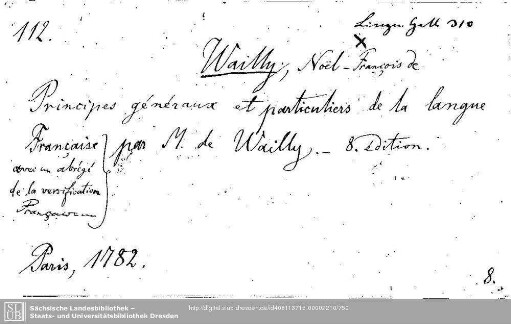 112.
Lingu. Gall 310
Wailly, Noël-François de
Principes généraux et particuliers de la langue
Française par M. de Wailly. — 8. Edition.
avec un abrégé
de la versification
Française
Paris, 1782.
8.
Sächsische Landesbibliothek –
Staats- und Universitätsbibliothek Dresden